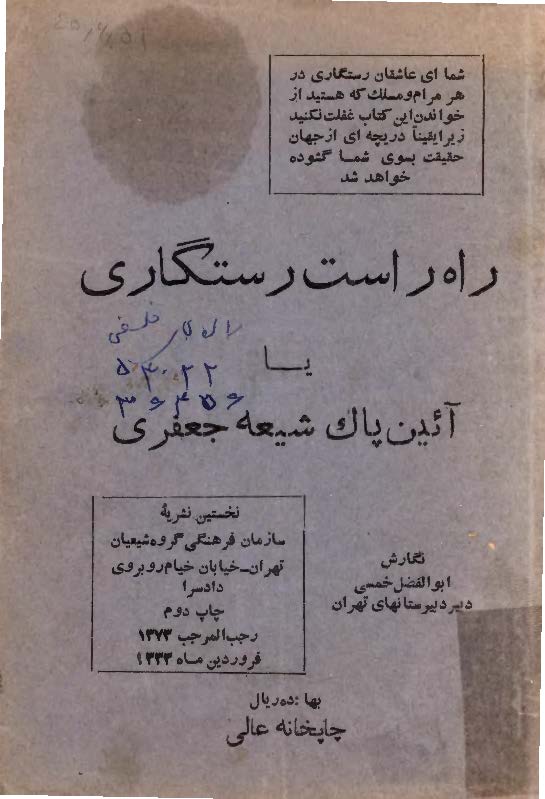 شما ای عاشقان رستگاری در
هر مرام و مسلك كه هستيد از
خواندن اين كتاب غفلت نكنيد
زيرا يقيناً دريچه ای از جهان
حقيقت بسوی شما گشوده
خواهد شد
راه راست رستگاری
فلسفی
۵۳۰۲۲
يا
آئين پاك شيعه جعفری
نخستين نشريهٔ
سازمان فرهنگی گروه شيعيان
تهران–خيابان خيام روبروی
دادسرا
چاپ دوم
رجب المرجب ۱۳۷۳
فروردين ماه ۱۳۳۳
نگارش
ابوالفضل خمسی
دبير دبيرستانهای تهران
بها : ده ريال
چاپخانه عالی